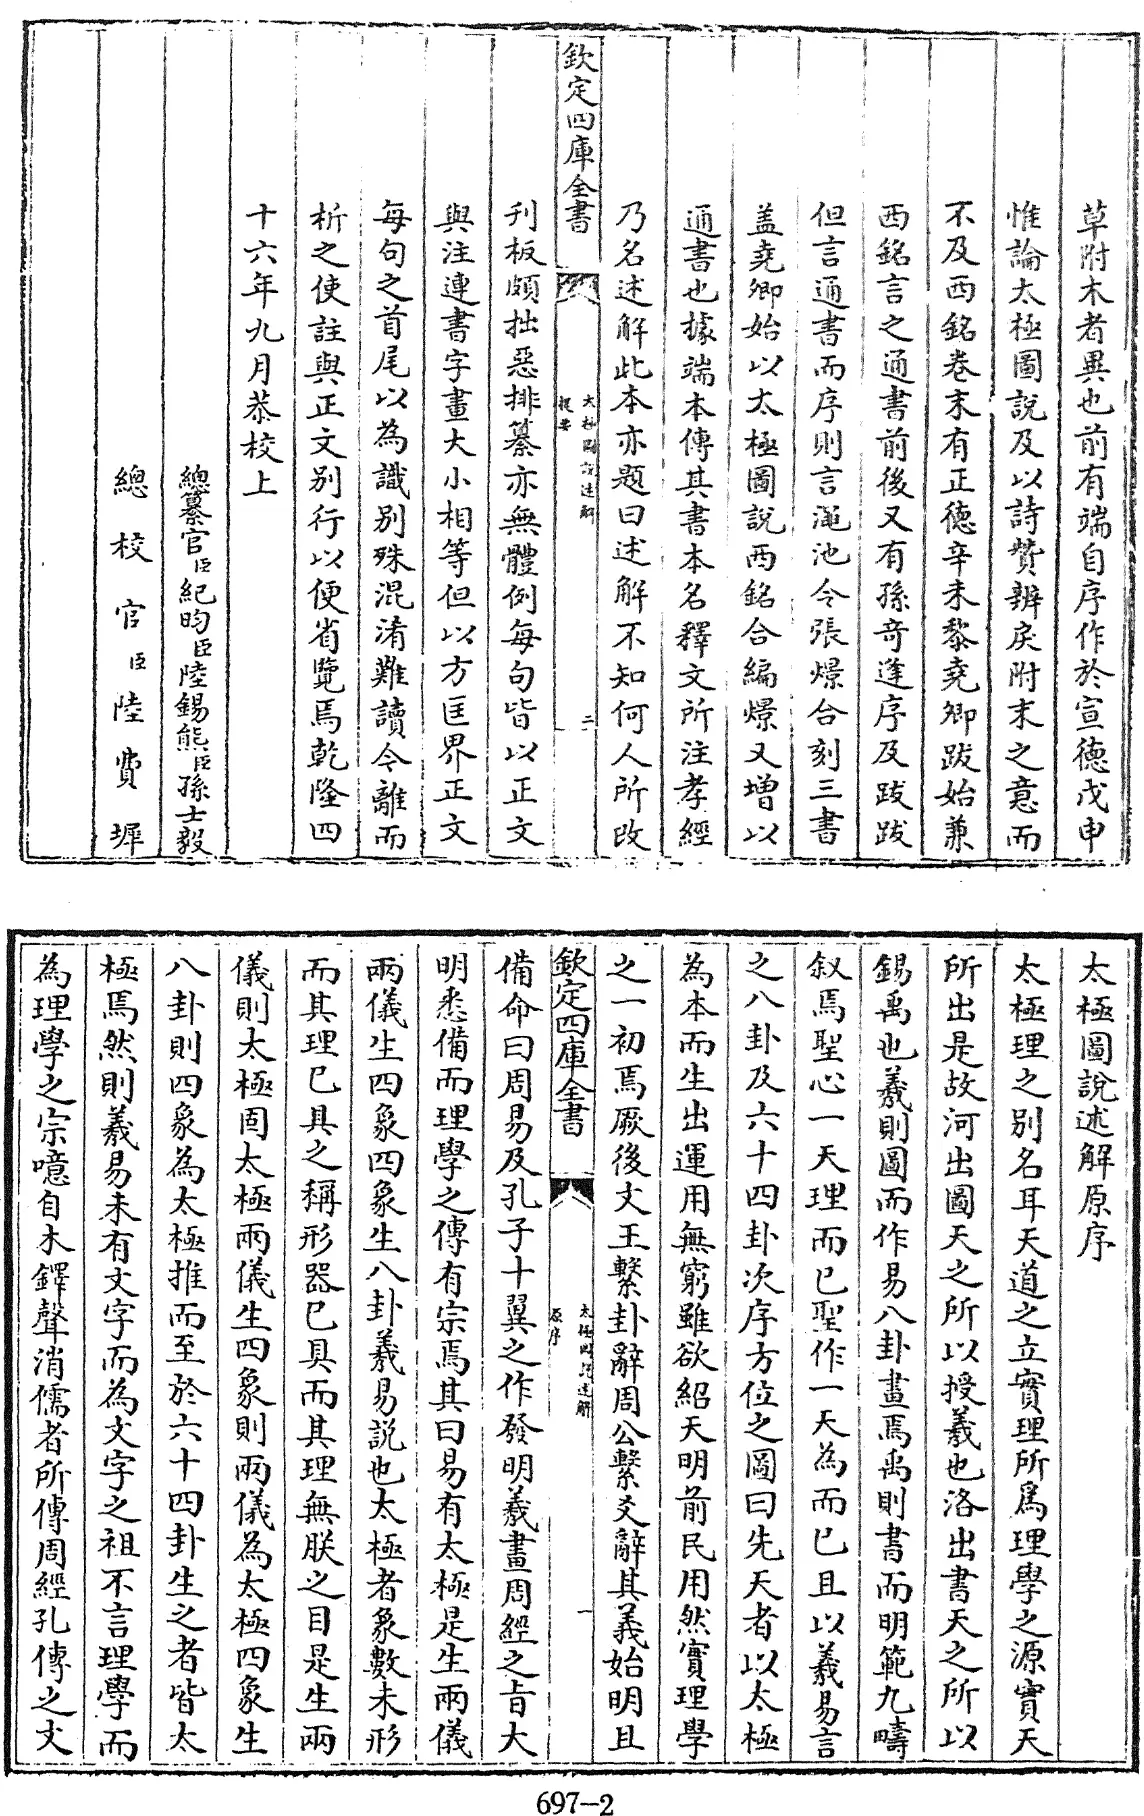 草附木者異也前有端自序作於宣德戊申
惟論太極圖說及以詩贊辨戾附末之意而
不及西銘卷末有正德辛未黎堯卿跋始兼
西銘言之通書前後又有孫奇逢序及跋跋
但言通書而序則言澠池令張燝合刻三書
盖堯卿始以太極圖說西銘合編燝又增以
通書也據端本傳其書本名釋文所注孝經
乃名述解此本亦題曰述解不知何人所改
欽定四庫全書
太極圖說述解
提要
二
刋板頗拙惡排纂亦無體例每句皆以正文
與注連書字畫大小相等但以方匡界正文
每句之首尾以為識別殊混淆難讀今離而
析之使註與正文别行以便省覽焉乾隆四
十六年九月恭校上
總纂官臣紀昀臣陸錫熊臣孫士毅
總校官臣陸費墀
太極圖說述解原序
太極理之别名耳天道之立實理所為理學之源實天
所出是故河出圖天之所以授羲也洛出書天之所以
錫禹也羲則圖而作易八卦畫焉禹則書而明範九疇
叙焉聖心一天理而已聖作一天為而已且以羲易言
之八卦及六十四卦次序方位之圖曰先天者以太極
為本而生出運用無窮雖欲紹天明前民用然實理學
之一初焉厥後文王繫卦辭周公繫爻辭其義始明且
欽定四庫全書
太極圖說述解
原序
一
備命曰周易及孔子十翼之作發明羲畫周經之旨大
明悉備而理學之傳有宗焉其曰易有太極是生兩儀
兩儀生四象四象生八卦羲易說也太極者象數未形
而其理已具之稱形器已具而其理無朕之目是生兩
儀則太極固太極兩儀生四象則兩儀為太極四象生
八卦則四象為太極推而至於六十四卦生之者皆太
極焉然則羲易未有文字而為文字之祖不言理學而
為理學之宗噫自木鐸聲消儒者所傳周經孔傳之文
697-2